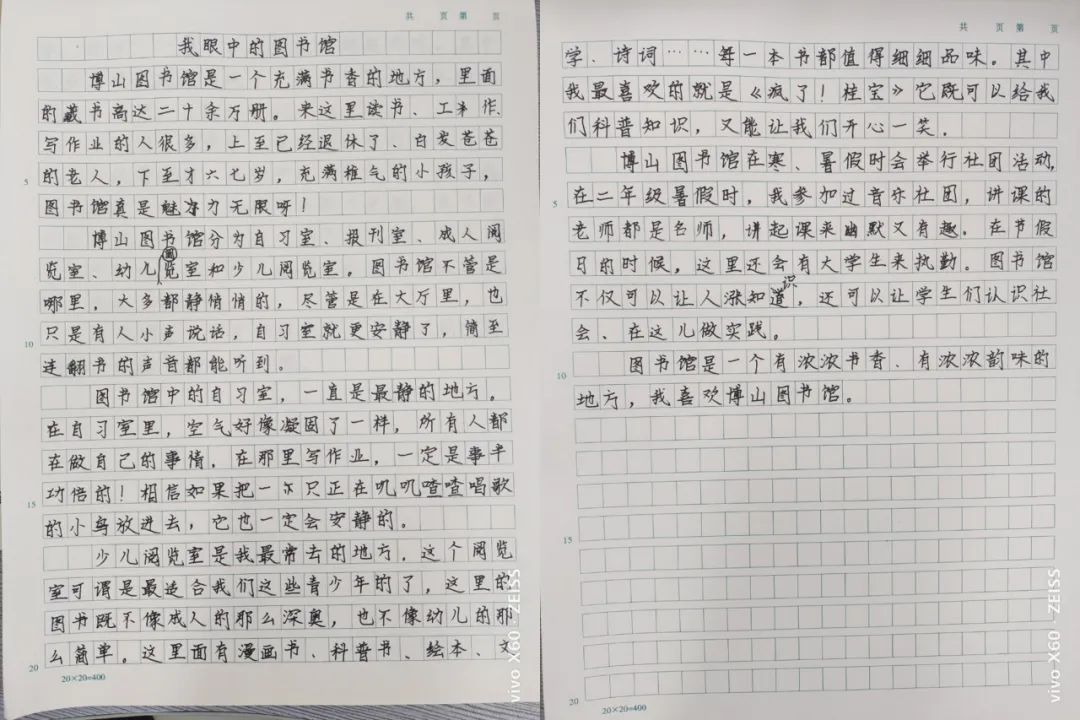 共 页 第 页
我眼中的图书馆
博山图书馆是一个充满书香的地方，里面
的藏书高达二十余万册。来这里读书、工作、
写作业的人很多，上至已经退休了、白发苍苍
5
的老人，下至才六七岁，充满稚气的小孩子，
图书馆真是魅力无限呀！
博山图书馆分为自习室、报刊室、成人阅
览室、幼儿阅览室和少儿阅览室。图书馆不管是
哪里，大多都静悄悄的，尽管是在大厅里，也
只是有人小声说话，自习室就更安静了，简至
10
连翻书的声音都能听到。
图书馆中的自习室，一直是最静的地方。
在自习室里，空气好像凝固了一样，所有人都
在做自己的事情，在那里写作业，一定是事半
功倍的！相信如果把一只正在叽叽喳喳唱歌
15
的小鸟放进去，它也一定会安静的。
少儿阅览室是我最常去的地方，这个阅览
室可谓是最适合我们这些青少年的了，这里的
图书既不像成人的那么深奥，也不像幼儿的那
么简单。这里面有漫画书、科普书、绘本、文
20
20×20=400
vivo X60 · ZEISS
共 页 第 页
学、诗词……每一本书都值得细细品味。其中
我最喜欢的就是《疯了！桂宝》它既可以给我
们科普知识，又能让我们开心一笑。
博山图书馆在寒、暑假时会举行社团活动，
5
在二年级暑假时，我参加过音乐社团，讲课的
老师都是名师，讲起课来幽默又有趣。在节假
日的时候，这里还会有大学生来执勤。图书馆
不仅可以让人涨知识，还可以让学生们认识社
会、在这儿做实践。
图书馆是一个有浓浓书香、有浓浓韵味的
10
地方，我喜欢博山图书馆。
15
20
20×20=400
vivo X60 · ZEISS